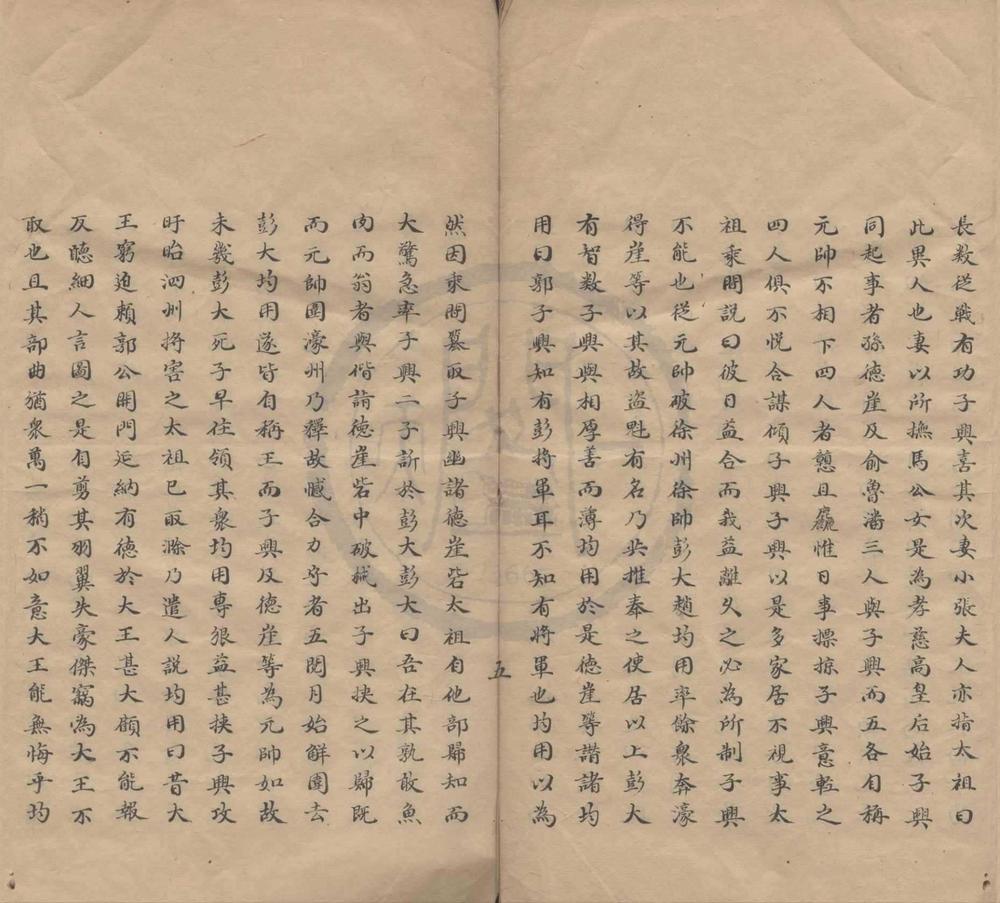 長數從戰有功子興喜其次妻小張夫人亦指太祖曰
此異人也妻以所撫馬公女是為孝慈高皇后始子興
同起事者孫德崖及俞魯潘三人與子興而五各自稱
元帥不相下四人者戇且麤惟日事摽掠子興意輕之
四人俱不悅合謀傾子興子興以是多家居不視事太
祖乘間說曰彼日益合而我益離久之必為所制子興
不能也從元帥破徐州徐帥彭大趙均用率餘衆奔濠
得崖等以其故盜魁有名乃共推奉之使居以上彭大
有智數子興與相厚善而薄均用於是德崖等譖諸均
用曰郭子興知有彭將軍耳不知有將軍也均用以為
五
然因乘間篡取子興幽諸德崖砦太祖自他部歸知而
大驚急率子興二子訴於彭大彭大曰吾在其孰敢魚
肉而翁者與偕詣德崖砦中破械出子興挾之以歸既
而元帥圍濠州乃釋故憾合力守者五閱月始解圍去
彭大均用遂皆自稱王而子興及德崖等為元帥如故
未幾彭大死子早住領其衆均用專狠益甚挾子興攻
盱眙泗州將害之太祖已取滁乃遣人說均用曰昔大
王窮迫賴郭公開門延納有德於大王甚大顧不能報
反聽細人言圖之是自剪其羽翼失豪傑竊為大王不
取也且其部曲猶衆萬一稍不如意大王能無悔乎均